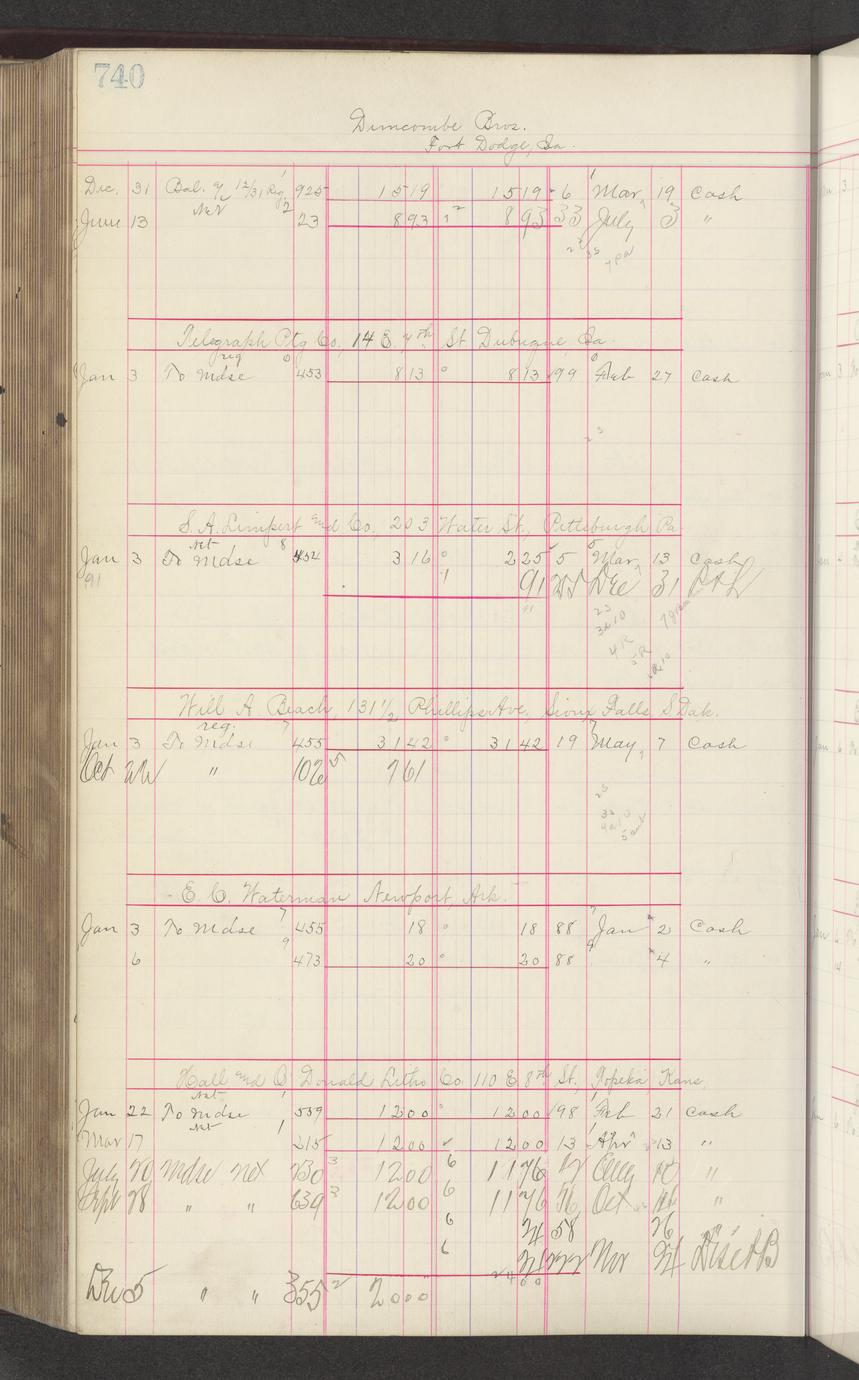 740
Duncombe Bros.
Fort Dodge, Ia.
Dec. 31 Bal. of 12/31 Reg. 925 1519 1519 6 Mar 19 Cash
Net 2
June 13 23 893 893 33 July 3 "
Telegraph Ptg Co, 14 E. 7th St Dubuque, Ia.
reg 0
Jan 3 To Mdse 453 813 813 99 Feb 27 Cash
S. A. Limpert and Co., 203 Water St., Pittsburgh Pa
Net 8
Jan 3 To Mdse 454 316 225 5 Mar 13 Cash
91 91 Dec 31
Will A Beach, 131 1/2 Phillips Ave, Sioux Falls, S Dak.
reg. 7
Jan 3 To Mdse 455 3142 3142 19 May 7 Cash
Oct 22 " 102 5 761
E. C. Waterman Newport, Ark.
7
Jan 3 To Mdse 455 18 18 88 Jan 2 Cash
9
6 473 20 20 88 4 "
Hall and O'Donald Litho Co 110 E 8th St., Topeka, Kans.
Net 1
Jan 22 To Mdse 559 1200 1200 98 Feb 21 Cash
Net 1
Mar 17 215 1200 1200 13 Apr 13 "
July 20 Mdse net 230 3 1200 6 1176 12 Aug 10 "
Sept 28 " " 639 3 1200 6 1176 76 Oct "
6 24 58 26 "
6 24 Nov 24
2400
Dec 5 " " 355 2 2000